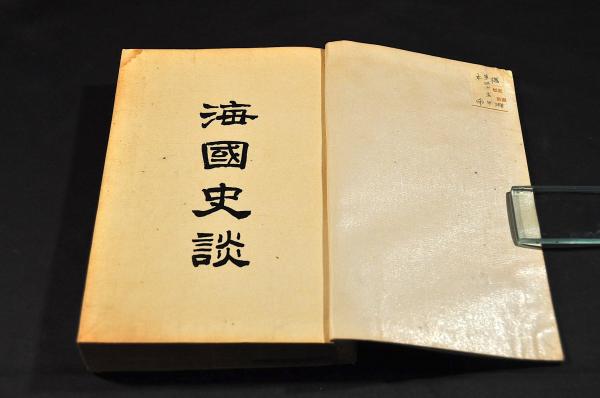 海國史談